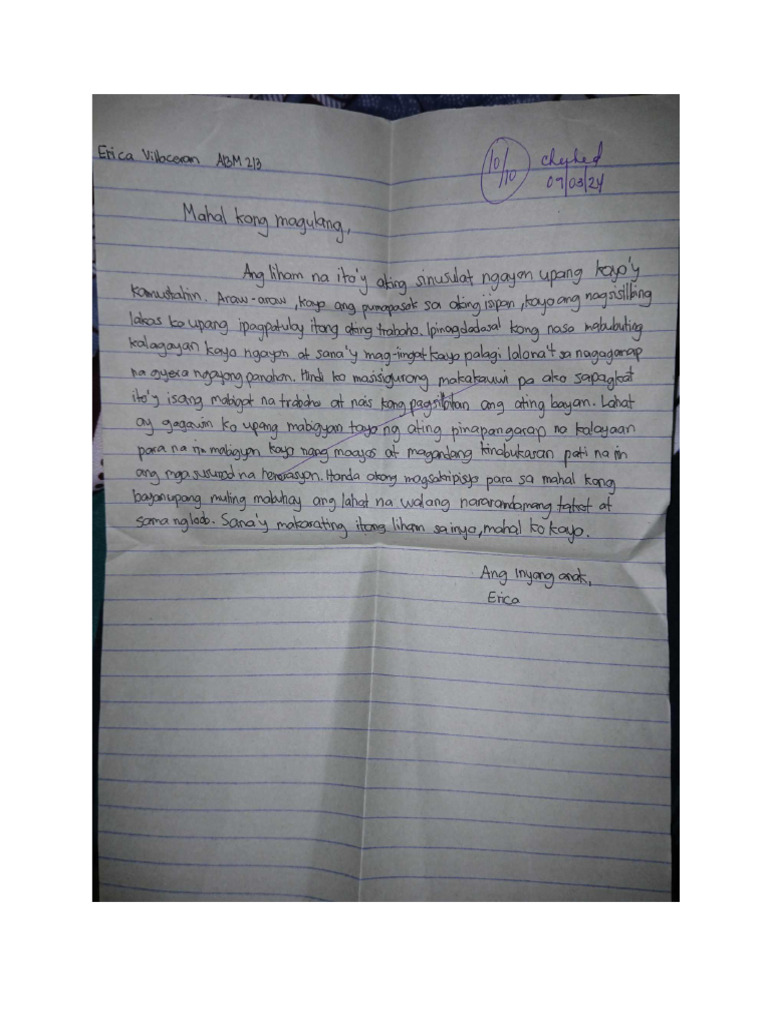 Erica Villaceran ABM 213
10/10 checked
09/03/24
Mahal kong magulang,
Ang liham na ito'y aking sinusulat ngayon upang kayo'y
kamustahin. Araw-araw, kayo ang pumapasok sa aking isipan, kayo ang nagsisilbing
lakas ko upang ipagpatuloy itong aking trabaho. Ipinagdadasal kong nasa mabubuting
kalagayan kayo ngayon at sana'y mag-ingat kayo palagi lalona't sa nagaganap
na gyera ngayong panahon. Hindi ko masisigurong makakauwi pa ako sapagkat
ito'y isang mabigat na trabaho at nais kong pagsilbilan ang ating bayan. Lahat
ay gagawin ko upang mabigyan tayo ng ating pinapangarap na kalayaan
para na rin mabigyan kayo nang maayos at magandang kinabukasan pati na rin
ang mga susunod na henerasyon. Handa akong magsakripisyo para sa mahal kong
bayan upang muling mabuhay ang lahat na walang nararamdamang takot at
sama ng loob. Sana'y makarating itong liham sainyo, mahal ko kayo.
Ang Inyong anak,
Erica